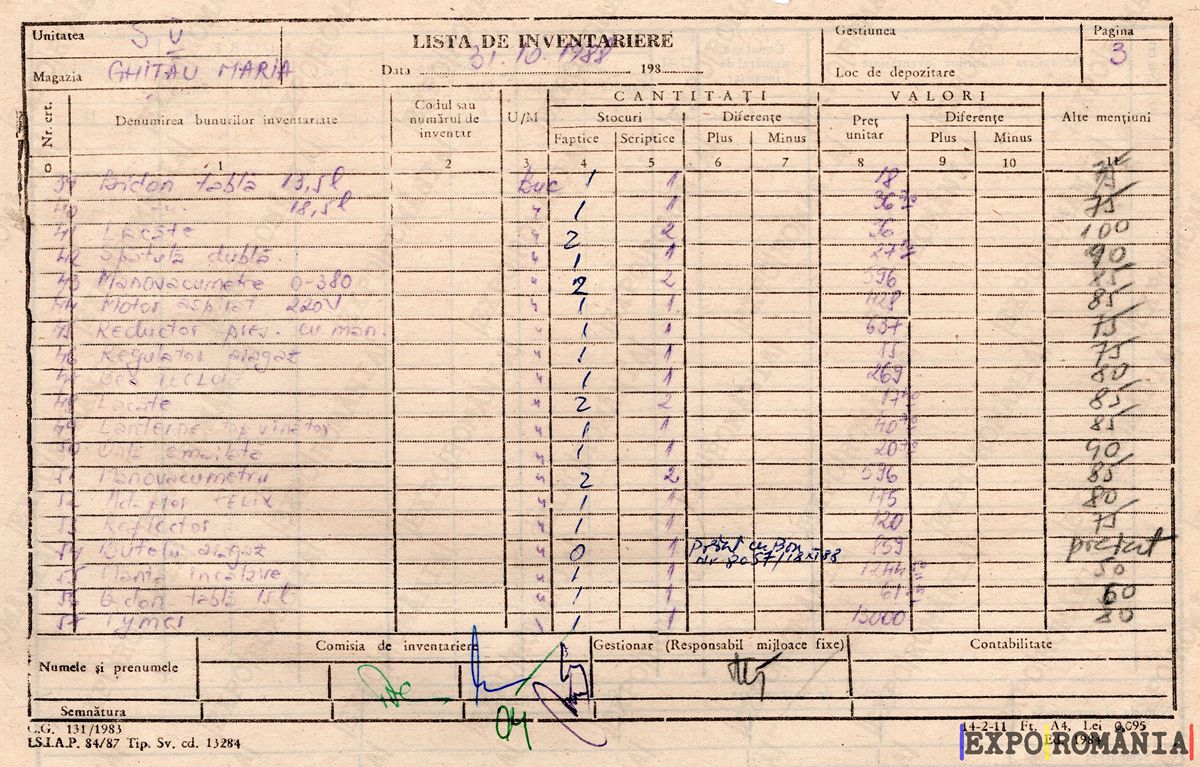 Unitatea S V
LISTA DE INVENTARIERE
Gestiunea
Pagina 3
Magazia GHITĂU MARIA
Data 31.10.1988 198
Loc de depozitare
Nr. crt.
Denumirea bunurilor inventariate
Codul sau numărul de inventar
U/M
CANTITĂȚI
VALORI
Alte mențiuni
Stocuri
Diferențe
Preț unitar
Diferențe
Faptice Scriptice Plus Minus Plus Minus
0 1 2 3 4 5 6 7 8 9 10 11
39 Bidon tablă 13,5l Buc 1 1 18 75
40 18,5l " 1 1 75
41 " 2 2 36 100
42 Spatulă dublă " 1 1 90
43 Manovacumetre 0-380 " 2 2 596 85
44 Motor 220V " 1 1 428 85
45 Reductor pres. cu man. " 1 1 637 75
46 Regulator aragaz " 1 1 75
47 Bec " 1 1 269 80
48 Lacate " 2 2 85
49 " 1 1 85
50 emailată " 1 1 90
51 Manovacumetru " 2 2 596 85
52 " 1 1 175 80
53 Reflector " 1 1 120 75
54 Butelii aragaz " 0 1 859 predat
55 " 1 1 50
56 Bidon tablă 15l " 1 1 60
57 1 1 80
Numele și prenumele
Comisia de inventariere
Gestionar (Responsabil mijloace fixe)
Contabilitate
Semnătura
C.G. 131/1983
I.S.I.A.P. 84/87 Tip. Sv. cd. 13284
14-2-11 Ft. A4, Lei 0,095
EXPO ROMÂNIA